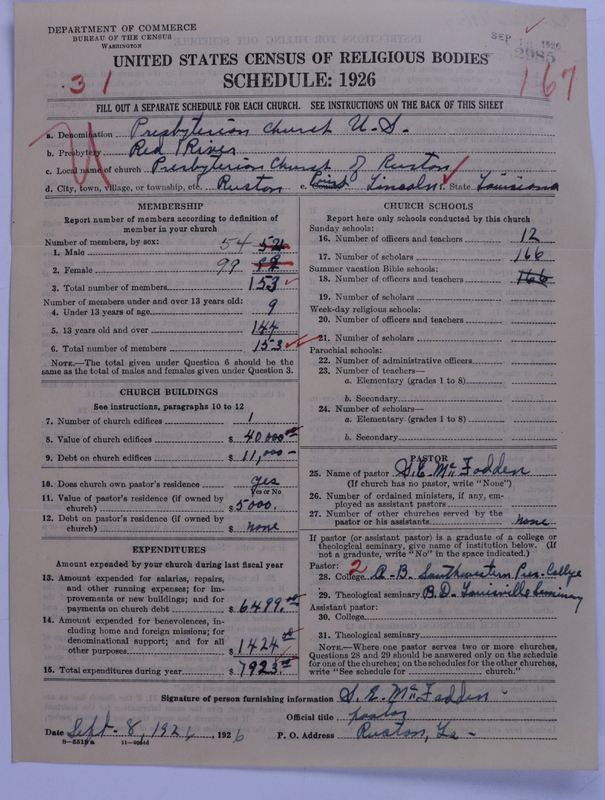 DEPARTMENT OF COMMERCE
BUREAU OF THE CENSUS
WASHINGTON
SEP 1926
2985
UNITED STATES CENSUS OF RELIGIOUS BODIES
SCHEDULE: 1926
31
167
FILL OUT A SEPARATE SCHEDULE FOR EACH CHURCH. SEE INSTRUCTIONS ON THE BACK OF THIS SHEET
a. Denomination Presbyterian Church U.S.
b. Presbytery Red River
c. Local name of church Presbyterian Church of Ruston
d. City, town, village, or township, etc. Ruston e. Lincoln f. State Louisiana
MEMBERSHIP
Report number of members according to definition of
member in your church
Number of members, by sex:
1. Male 54 52
2. Female 99
3. Total number of members 153
Number of members under and over 13 years old:
4. Under 13 years of age 9
5. 13 years old and over 144
6. Total number of members 153
NOTE.—The total given under Question 6 should be the
same as the total of males and females given under Question 3.
CHURCH BUILDINGS
See instructions, paragraphs 10 to 12
7. Number of church edifices 1
8. Value of church edifices $ 40,000.00
9. Debt on church edifices $ 11,000 -
10. Does church own pastor's residence yes
Yes or No
11. Value of pastor's residence (if owned by
church) $ 5000.
12. Debt on pastor's residence (if owned by
church) $ none
EXPENDITURES
Amount expended by your church during last fiscal year
13. Amount expended for salaries, repairs,
and other running expenses; for im-
provements or new buildings; and for
payments on church debt $ 6499.00
14. Amount expended for benevolences, in-
cluding home and foreign missions; for
denominational support; and for all
other purposes $ 1424.00
15. Total expenditures during year $ 7923.00
CHURCH SCHOOLS
Report here only schools conducted by this church
Sunday schools:
16. Number of officers and teachers 12
17. Number of scholars 166
Summer vacation Bible schools:
18. Number of officers and teachers 166
19. Number of scholars
Week-day religious schools:
20. Number of officers and teachers
21. Number of scholars
Parochial schools:
22. Number of administrative officers
23. Number of teachers—
a. Elementary (grades 1 to 8)
b. Secondary
24. Number of scholars—
a. Elementary (grades 1 to 8)
b. Secondary
PASTOR
25. Name of pastor S. E. McFadden
(If church has no pastor, write "None")
26. Number of ordained ministers, if any, em-
ployed as assistant pastors
27. Number of other churches served by the
pastor or his assistants none
If pastor (or assistant pastor) is a graduate of a college or
theological seminary, give name of institution below. (If
not a graduate, write "No" in the space indicated.)
Pastor: 2
28. College A.B. Southwestern Pres. College
29. Theological seminary B.D. Louisville Seminary
Assistant pastor:
30. College
31. Theological seminary
NOTE.—Where one pastor serves two or more churches,
Questions 28 and 29 should be answered only on the schedule
for one of the churches; on the schedules for the other churches,
write "See schedule for church."
Signature of person furnishing information S. E. McFadden
Official title pastor
Date Sept. 8, 1926, 1926 P. O. Address Ruston, La -
8-5518a